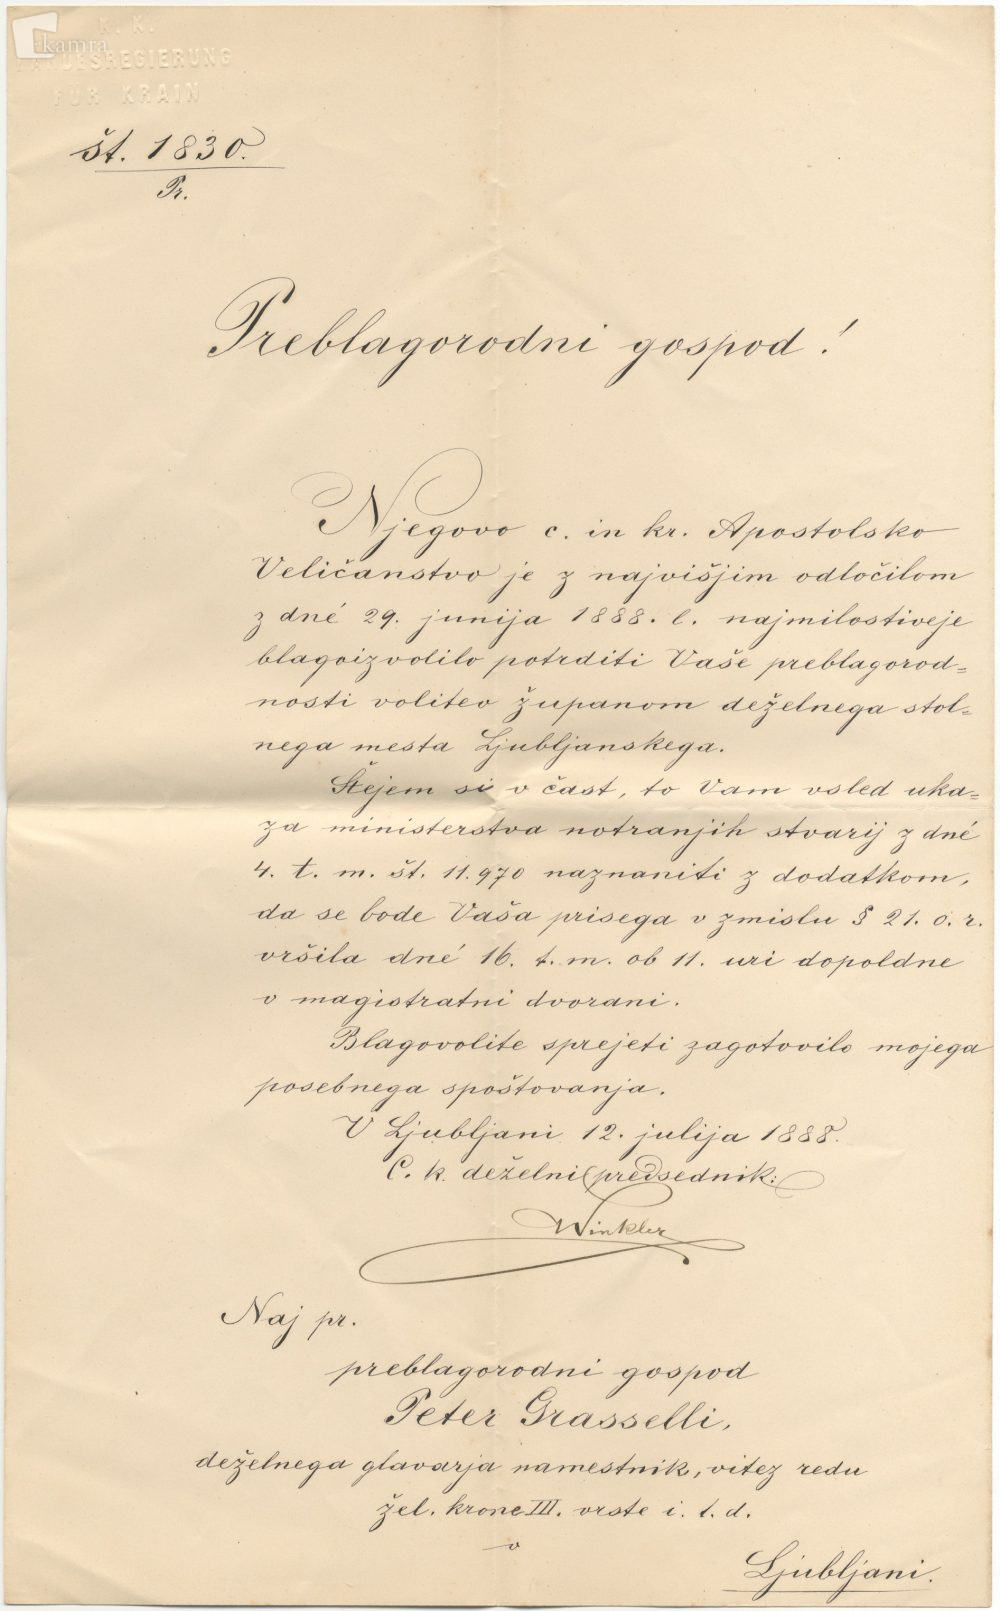 kamra
K. K.
LANDESREGIERUNG
FÜR KRAIN
št. 1830.
Pr.
Preblagorodni gospod!
Njegovo c. in kr. Apostolsko
Veličanstvo je z najvišjim odločilom
z dné 29. junija 1888. l. najmilostiveje
blagoizvolilo potrditi Vaše preblagorod=
nosti volitev županom deželnega stol=
nega mesta Ljubljanskega.
Štejem si v čast, to Vam vsled uka=
za ministerstva notranjih stvarij z dné
4. t. m. št. 11.970 naznaniti z dodatkom,
da se bode Vaša prisega v zmislu § 21. o. r.
vršila dné 16. t. m. ob 11. uri dopoldne
v magistratni dvorani.
Blagovolite sprejeti zagotovilo mojega
posebnega spoštovanja.
V Ljubljani 12. julija 1888.
C. k. deželni predsednik:
Winkler
Naj pr.
preblagorodni gospod
Peter Grasselli,
deželnega glavarja namestnik, vitez redu
žel. krone III. vrste i. t. d.
v
Ljubljani.